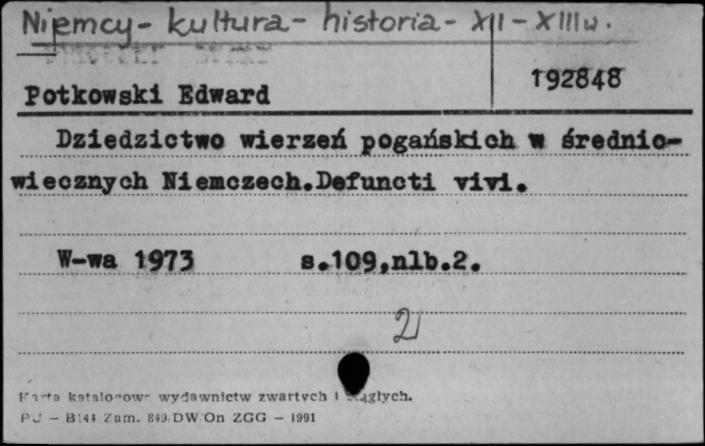 Niemcy - kultura - historia - XII - XIII w.
192848
Potkowski Edward
Dziedzictwo wierzeń pogańskich w średnio-
wiecznych Niemczech.Defuncti vivi.
W-wa 1973 s.109,nlb.2.
2
Karta katalogowa wydawnictw zwartych i ciągłych.
PU - B144 Zam. 849 DW/On ZGG - 1991